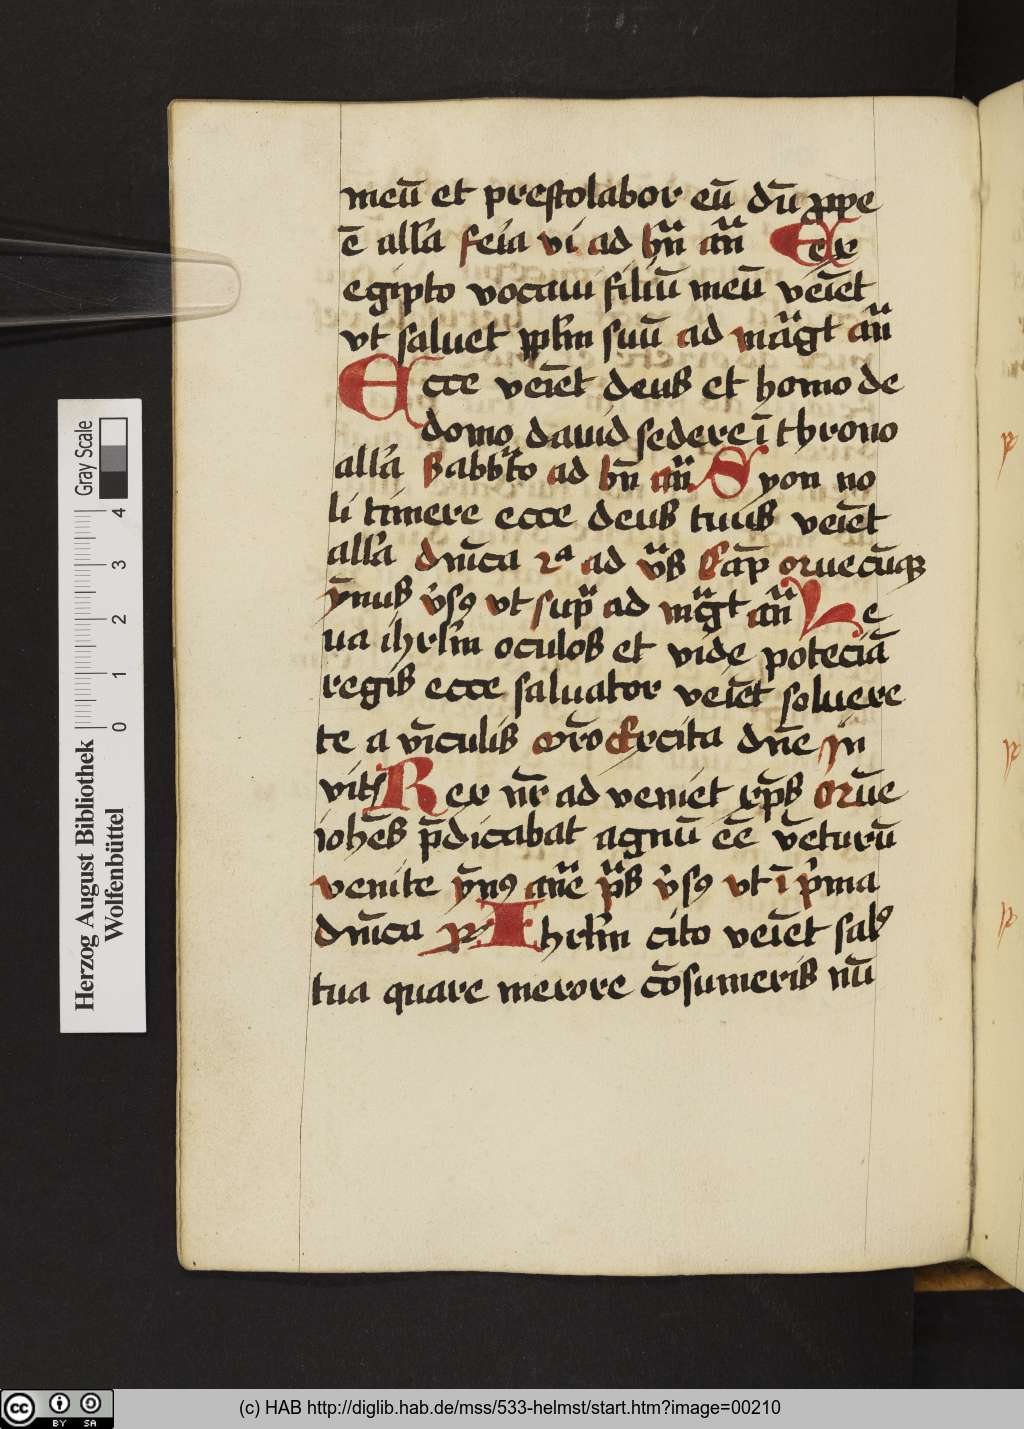 meū et prestolabor eū dū ꝓpe
ē all'a feīa vi ad bn̄ an̄ Ex
egipto vocaui filiū meū veīet
vt saluet ppl'm suū ad māgt an̄
Ecce veīet deus et homo de
domo dauid sedere ī throno
all'a Sabb'to ad bn̄ an̄ Syon no
li timere ecce deus tuus veīet
all'a dn̄ica 2ᵃ ad v̄s Cap̄ orvecūqꝫ
ȳnus v̓sꝯ vt sup̄ ad māgt an̄ Le
ua ihrl'm oculos et vide potēciā
regis ecce saluator veīet soluere
te a vīculis orō Excita dn̄e In
vit Rex nr̄ ad veniet xp̄s orvē
iohēs p̄dicabat agnū ēē vēturū
venite ȳnꝯ an̄e p̄s v̓sꝯ vt ī p̓ma
dn̄ica Ihrl'm cito veīet salꝯ
tua quare merore cōsumeris nū
Gray Scale
0 1 2 3 4
Herzog August Bibliothek
Wolfenbüttel
cc BY SA
(c) HAB http://diglib.hab.de/mss/533-helmst/start.htm?image=00210